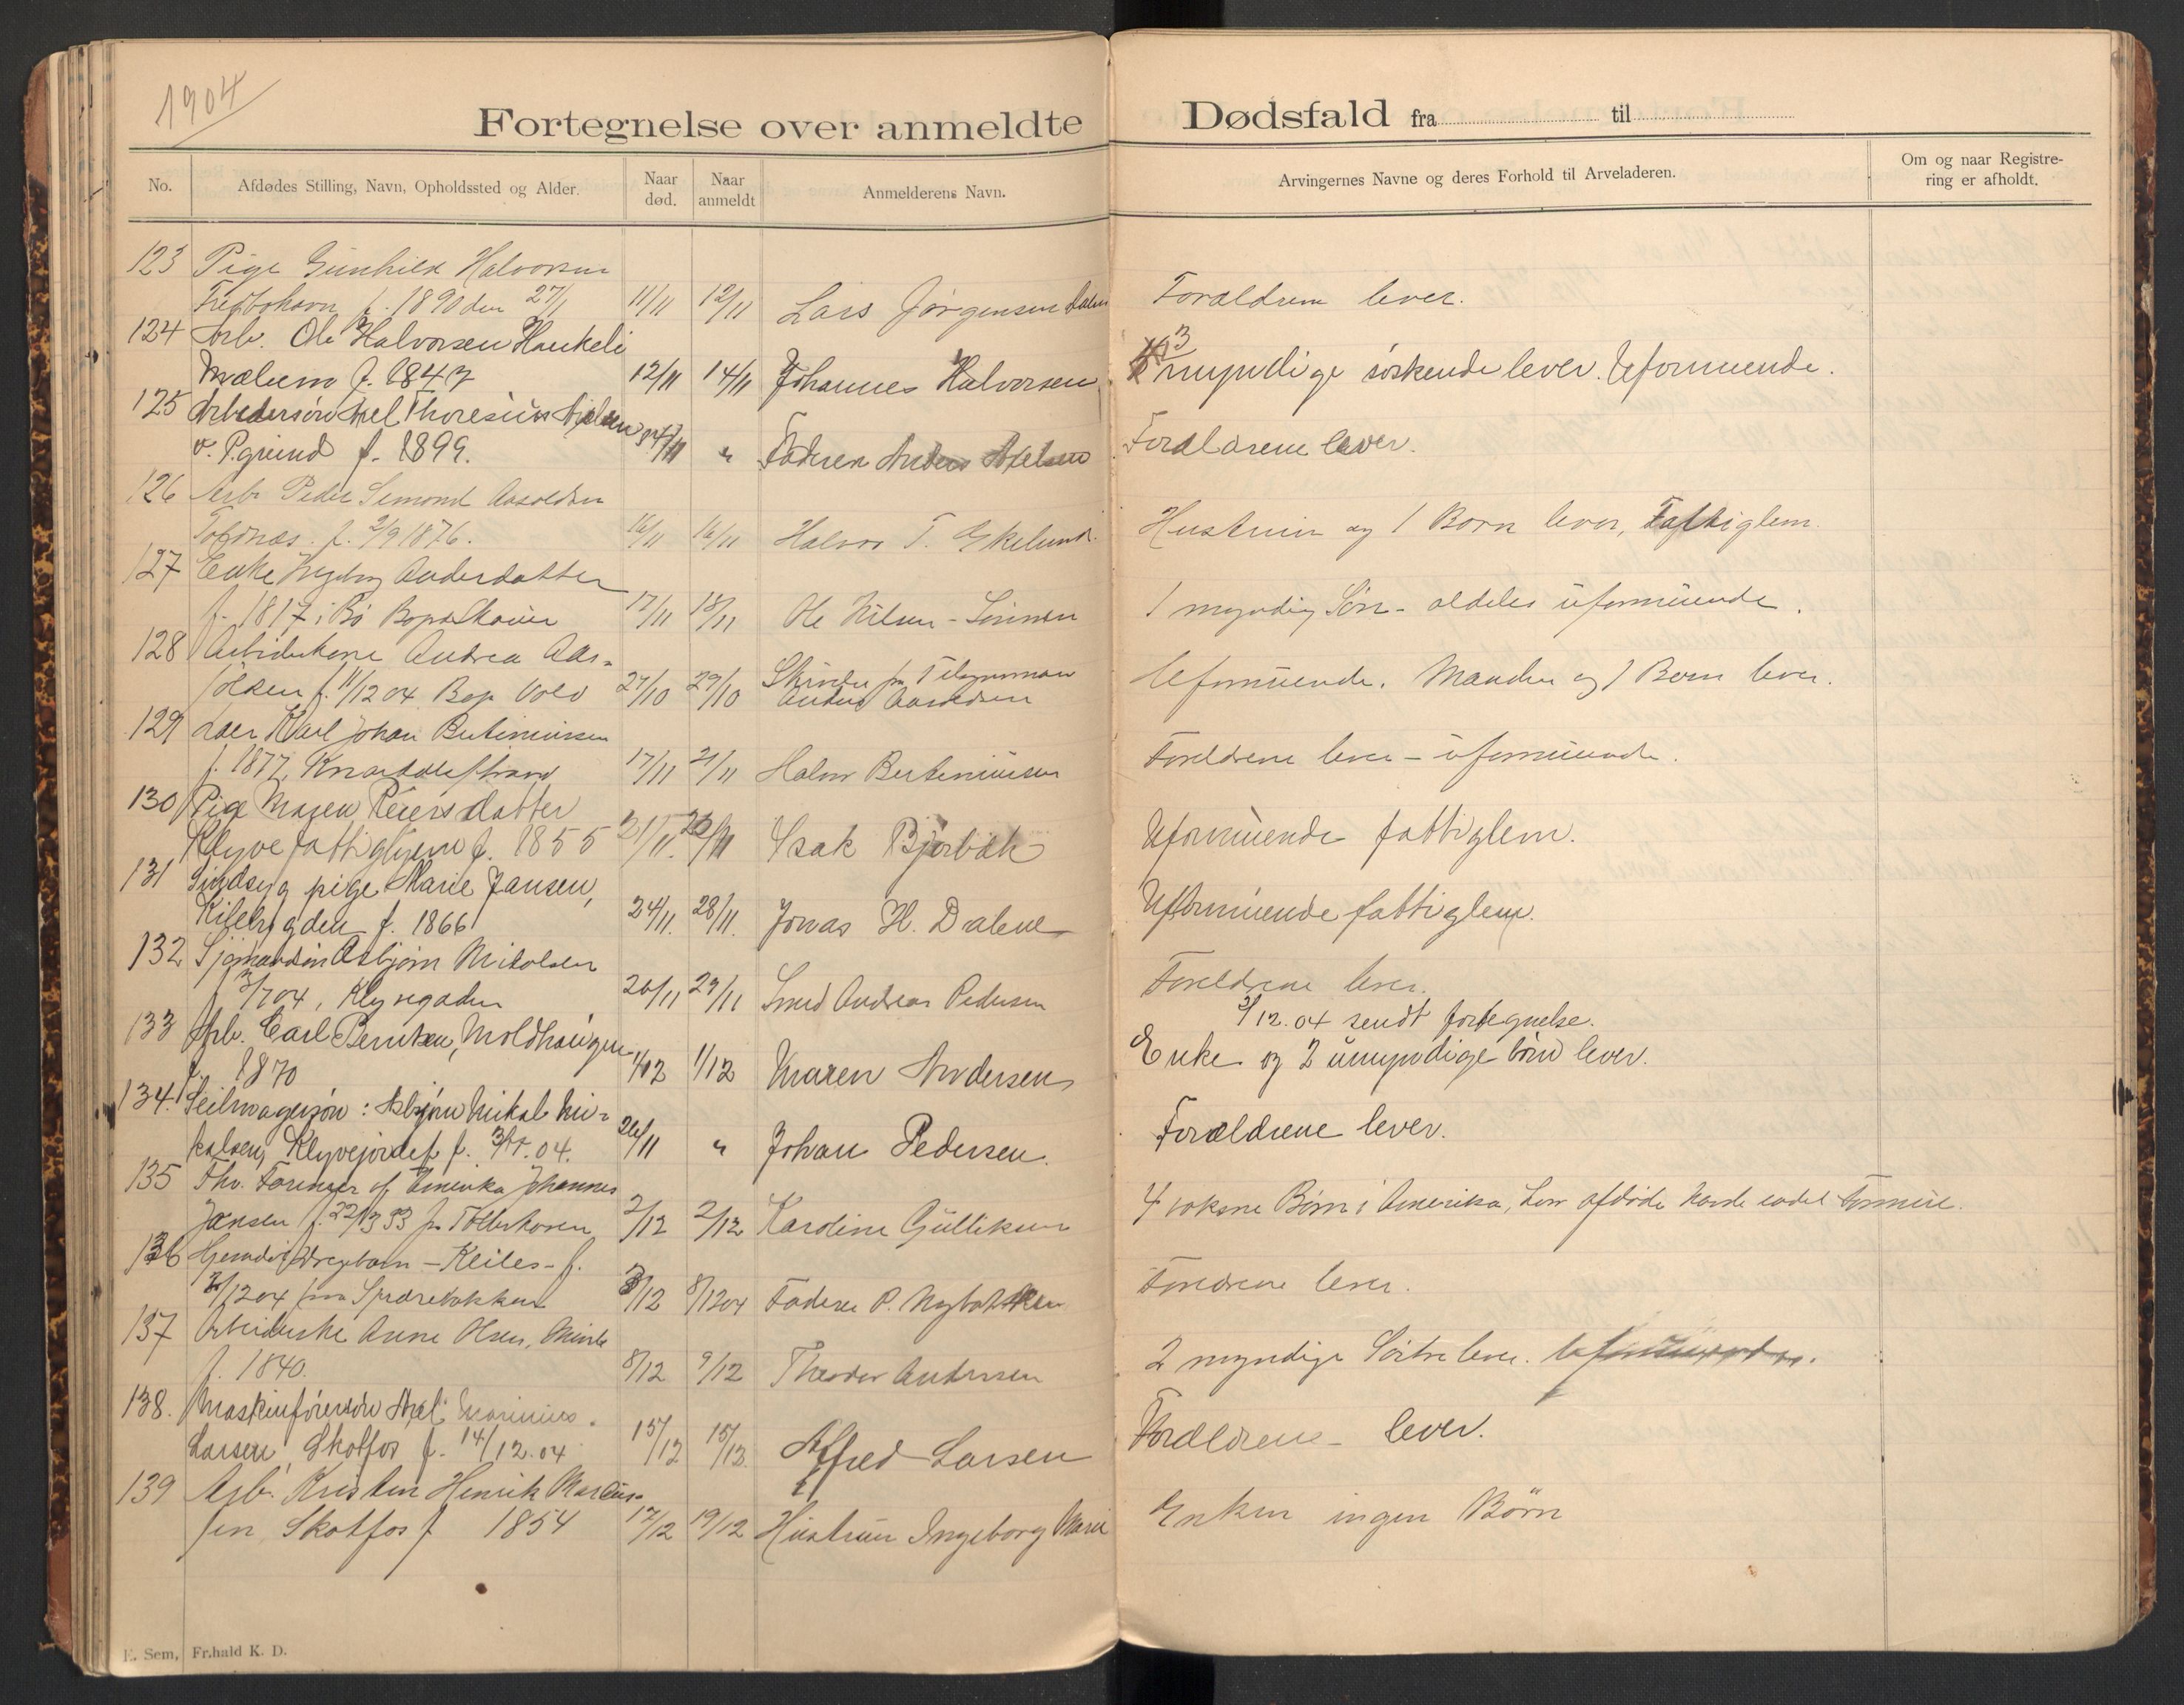 1904
Fortegnelse over anmeldte Dødsfald fra til
No. Afdødes Stilling, Navn, Opholdssted og Alder. Naar død. Naar anmeldt Anmelderens Navn. Arvingernes Navne og deres Forhold til Arveladeren. Om og naar Registrering er afholdt.
123 Pige Gunhild Halvorsen
f. 1890 den 27/1 11/11 12/11 Lars Jørgensen Forældrene lever.
124 Arb. Ole Halvorsen Haukeli
Mælum f. 1847 12/11 14/11 Johannes Halvorsen 3 myndige søskende lever. Uformuende.
125 Arbedersøn Axel Thoresius Axelsen
v. Pgrund f. 1899. /11 " Faderen Anders Axelsen Forældrene lever.
126 Arb Peder Simond Aasoldsen
f. 2/9 1876. 16/11 16/11 Halvor T. Ekelund. Hustruen og 1 Barn lever, Fattiglem.
127 Enke Ingeborg Andersdatter
f. 1817 i Bø Bopæl Skauen 17/11 18/11 Ole Nilsen - 1 myndig Søn - aldeles uformuende.
128 Arbeiderkone Andrea Aas-
olsen f. 11/12 04 Bop Vold 27/10 29/10 Anders Aasoldsen Uformuende. Manden og 1 Barn lever.
129 Karl Johan Bertiniussen
f. 1877, Knardalsstrand 17/11 21/11 Halvor Bertiniussen Forældrene lever - uformuende.
130 Pige Maren Reiersdatter
Klyve fattighjem f. 1855 21/11. /11 Isak Bjørbæk Uformuende fattiglem.
131 Sindsyg pige Marie Jansen,
Kilebygden f. 1866 24/11. 28/11. Jonas H. Dalene Uformuende fattiglem.
132 Sjømandsøn Asbjørn Mikalsen
f 3/7 04, Klyvegaden 26/11 29/11 Smed Andreas Pedersen Forældrene lever.
2/12.04 sendt fortegnelse.
133 Arb. Carl Berntsen, Moldhaugen
f. 1870 1/12 1/12 Maren Andersen Enke og 2 umyndige børn lever.
134. Seilmagersøn: Asbjørn Mikal Mi-
kalsen, Klyvejordet f. 3/7.04. 26/11 " Johan Pedersen. Forældrene lever.
135 Fhv. Farmer af Amerika Johannes
Jansen f. 22/3 53 2/12 2/12 Karoline Gulliksen 4 voksne Børn i Amerika, afdøde havde endel Formue.
136 Hjemdøbt Drengebarn - Kleiles - f.
/12 04 fra 3/12 8/12 04 Faderen P. Forældrene lever.
137 Arbeiderske Anne Olsen,
f. 1840. 8/12 9/12 Theodor Andersen 2 myndige Søstre lever.
138. Maskinførersøn Axel Marinius
Larsen, Skotfos f. 14/12.04 15/12 15/12 Alfred Larsen Forældrene lever.
139 Arb. Kristen Henrik Marcus-
sen Skotfos f 1854 17/12 19/12 Hustruen Ingeborg Marie Enken ingen Børn
E. Sem, Fr.hald K. D.